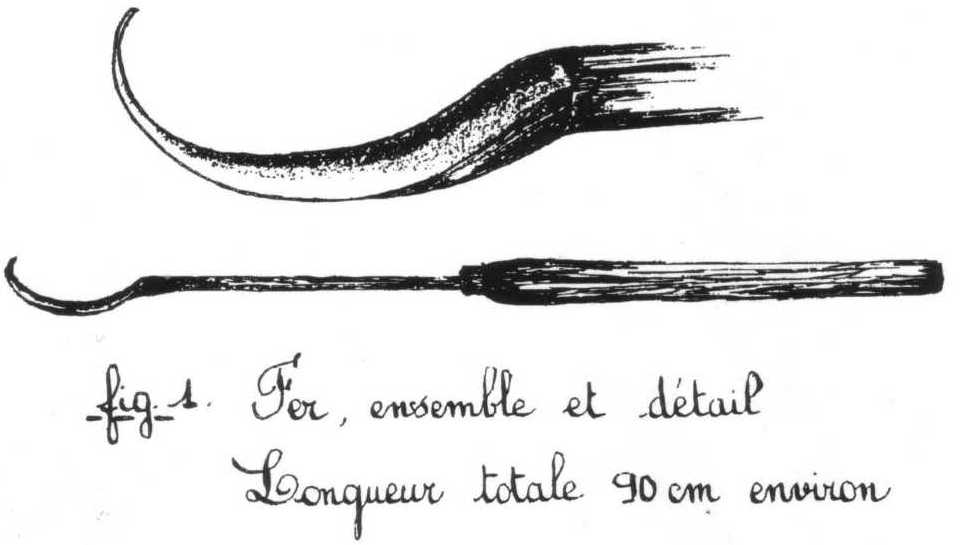 fig. 1. Fer, ensemble et détail
Longueur totale 90 cm environ